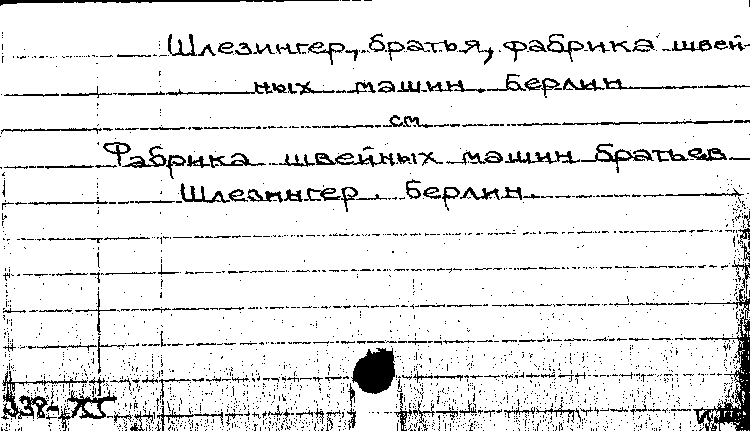 Шлезингер, братья, фабрика швей-
ных машин. Берлин
см.
Фабрика швейных машин братьев
Шлезингер. Берлин.